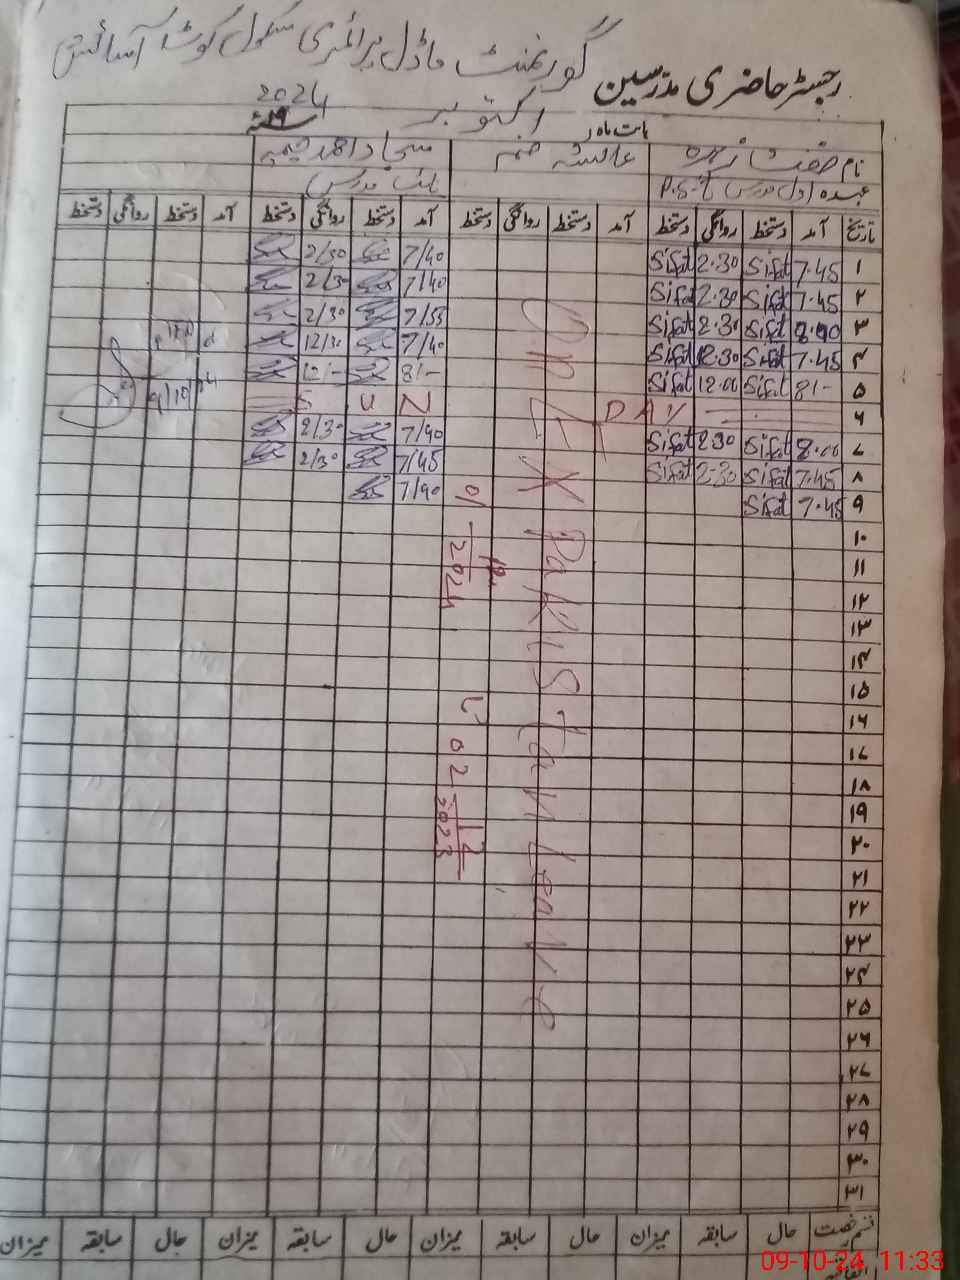 گورنمنٹ ماڈل پرائمری سکول کوٹ آسائش
رجسٹر حاضری مدرسین
بابت ماہ اکتوبر 2024
نام صفت زہرہ عائشہ صنم سجاد احمد چیمہ
عہدہ اول مدرس P.S.T نائب مدرس
تاریخ آمد دستخط روانگی دستخط آمد دستخط روانگی دستخط آمد دستخط روانگی دستخط آمد دستخط روانگی دستخط
۱ 7.45 Sifat 2.30 Sifat 7/40 2/30
۲ 7.45 Sifat 2.30 Sifat 7/40 2/30
۳ 8.00 Sifat 2.30 Sifat 7/55 2/30
۴ 7.45 Sifat 12.30 Sifat 7/40 12/30
۵ 8/- Sifat 12.00 Sifat 8/- 12/-
۶ S U N DAY
۷ 8.00 Sifat 2.30 Sifat 7/40 2/30
۸ 7.45 Sifat 2.30 Sifat 7/45 2/30
۹ 7.45 Sifat 7/40
9/10/24
On EX Pakistan Leave
۱۰
۱۱
۱۲
۱۳
۱۴
۱۵
۱۶
۱۷
۱۸
۱۹
۲۰
۲۱
۲۲
۲۳
۲۴
۲۵
۲۶
۲۷
۲۸
۲۹
۳۰
۳۱
قسم رخصت حال سابقہ میزان حال سابقہ میزان حال سابقہ میزان حال سابقہ میزان
اتفاقیہ
09-10-24 11:33